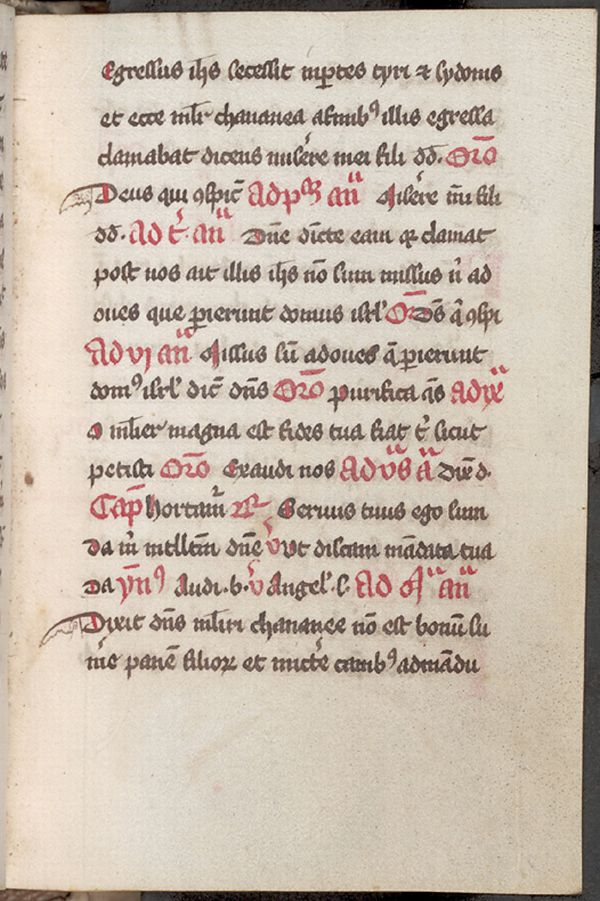 Egressus ihs secessit inptes tyri et sydonis
et ecce mlr chananea afinib9 illis egressa
clamabat dicens miserere mei fili dd. Oro
Deus qui 9spic Ad pm an Misere mi fili
dd. Ad t. an Dne dicte eam qr clamat
post nos ait illis ihs no sum missus n ad
oues que perierunt domus isrl Oro Ds q 9spi
Ad vi an Missus su ad oues q perierunt
dom9 isrl dic dns Oro purifica qs ad ix
O mlier magna est fides tua fiat t sicut
petisti Oro Exaudi nos Ad vs a Dixe d.
Cap hortam R Seruus tuus ego sum
Da m intllcm dne V Vt discam madata tua
Da ymn9 Audi. b. V Angel. s. Ad m an
Dixit dns mlieri chananee no est bonu su
me pane filior et mitte canib9 admadu